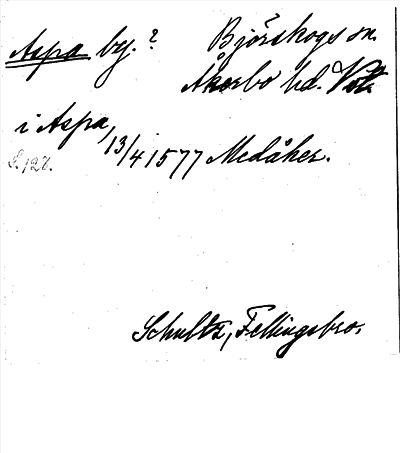 Aspa by. ? Björskogs sn.
Åkerbo hd. Vstm.
i Aspa, 13/4 1577 Medåker.
S. 127.
Schultz, Fellingsbro.